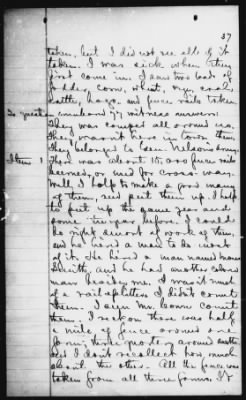 37
taken, but I did not see all of it
taken. I was sick when they
first come in. I saw two loads of
fodder, corn, wheat, rye, coal,
cattle, hogs, and fence rails taken.
To question numbered 77, witness answers:
They was camped all around us.
They wasn't here in town then.
They belonged to Gen. Nelson's army.
Item 1. There was about 15,000 fence rails
burned, or used for cross-way.
Well I help to make a good many
of them, and put them up. I help
to put up the same year and
some the year before. I could
do right smart of work of them,
and he hired a man to do most
of it. He hired a man named
Smith, and he had another colored
man besides me. I wasn't much
of a rail splitter. I didn't count
them. I seen Mr. count
them. I reckon there was half
a mile of fence around one
farm, three quarters around another
and I don't recollect how much
about the other. All the fence was
taken from all three farms. It